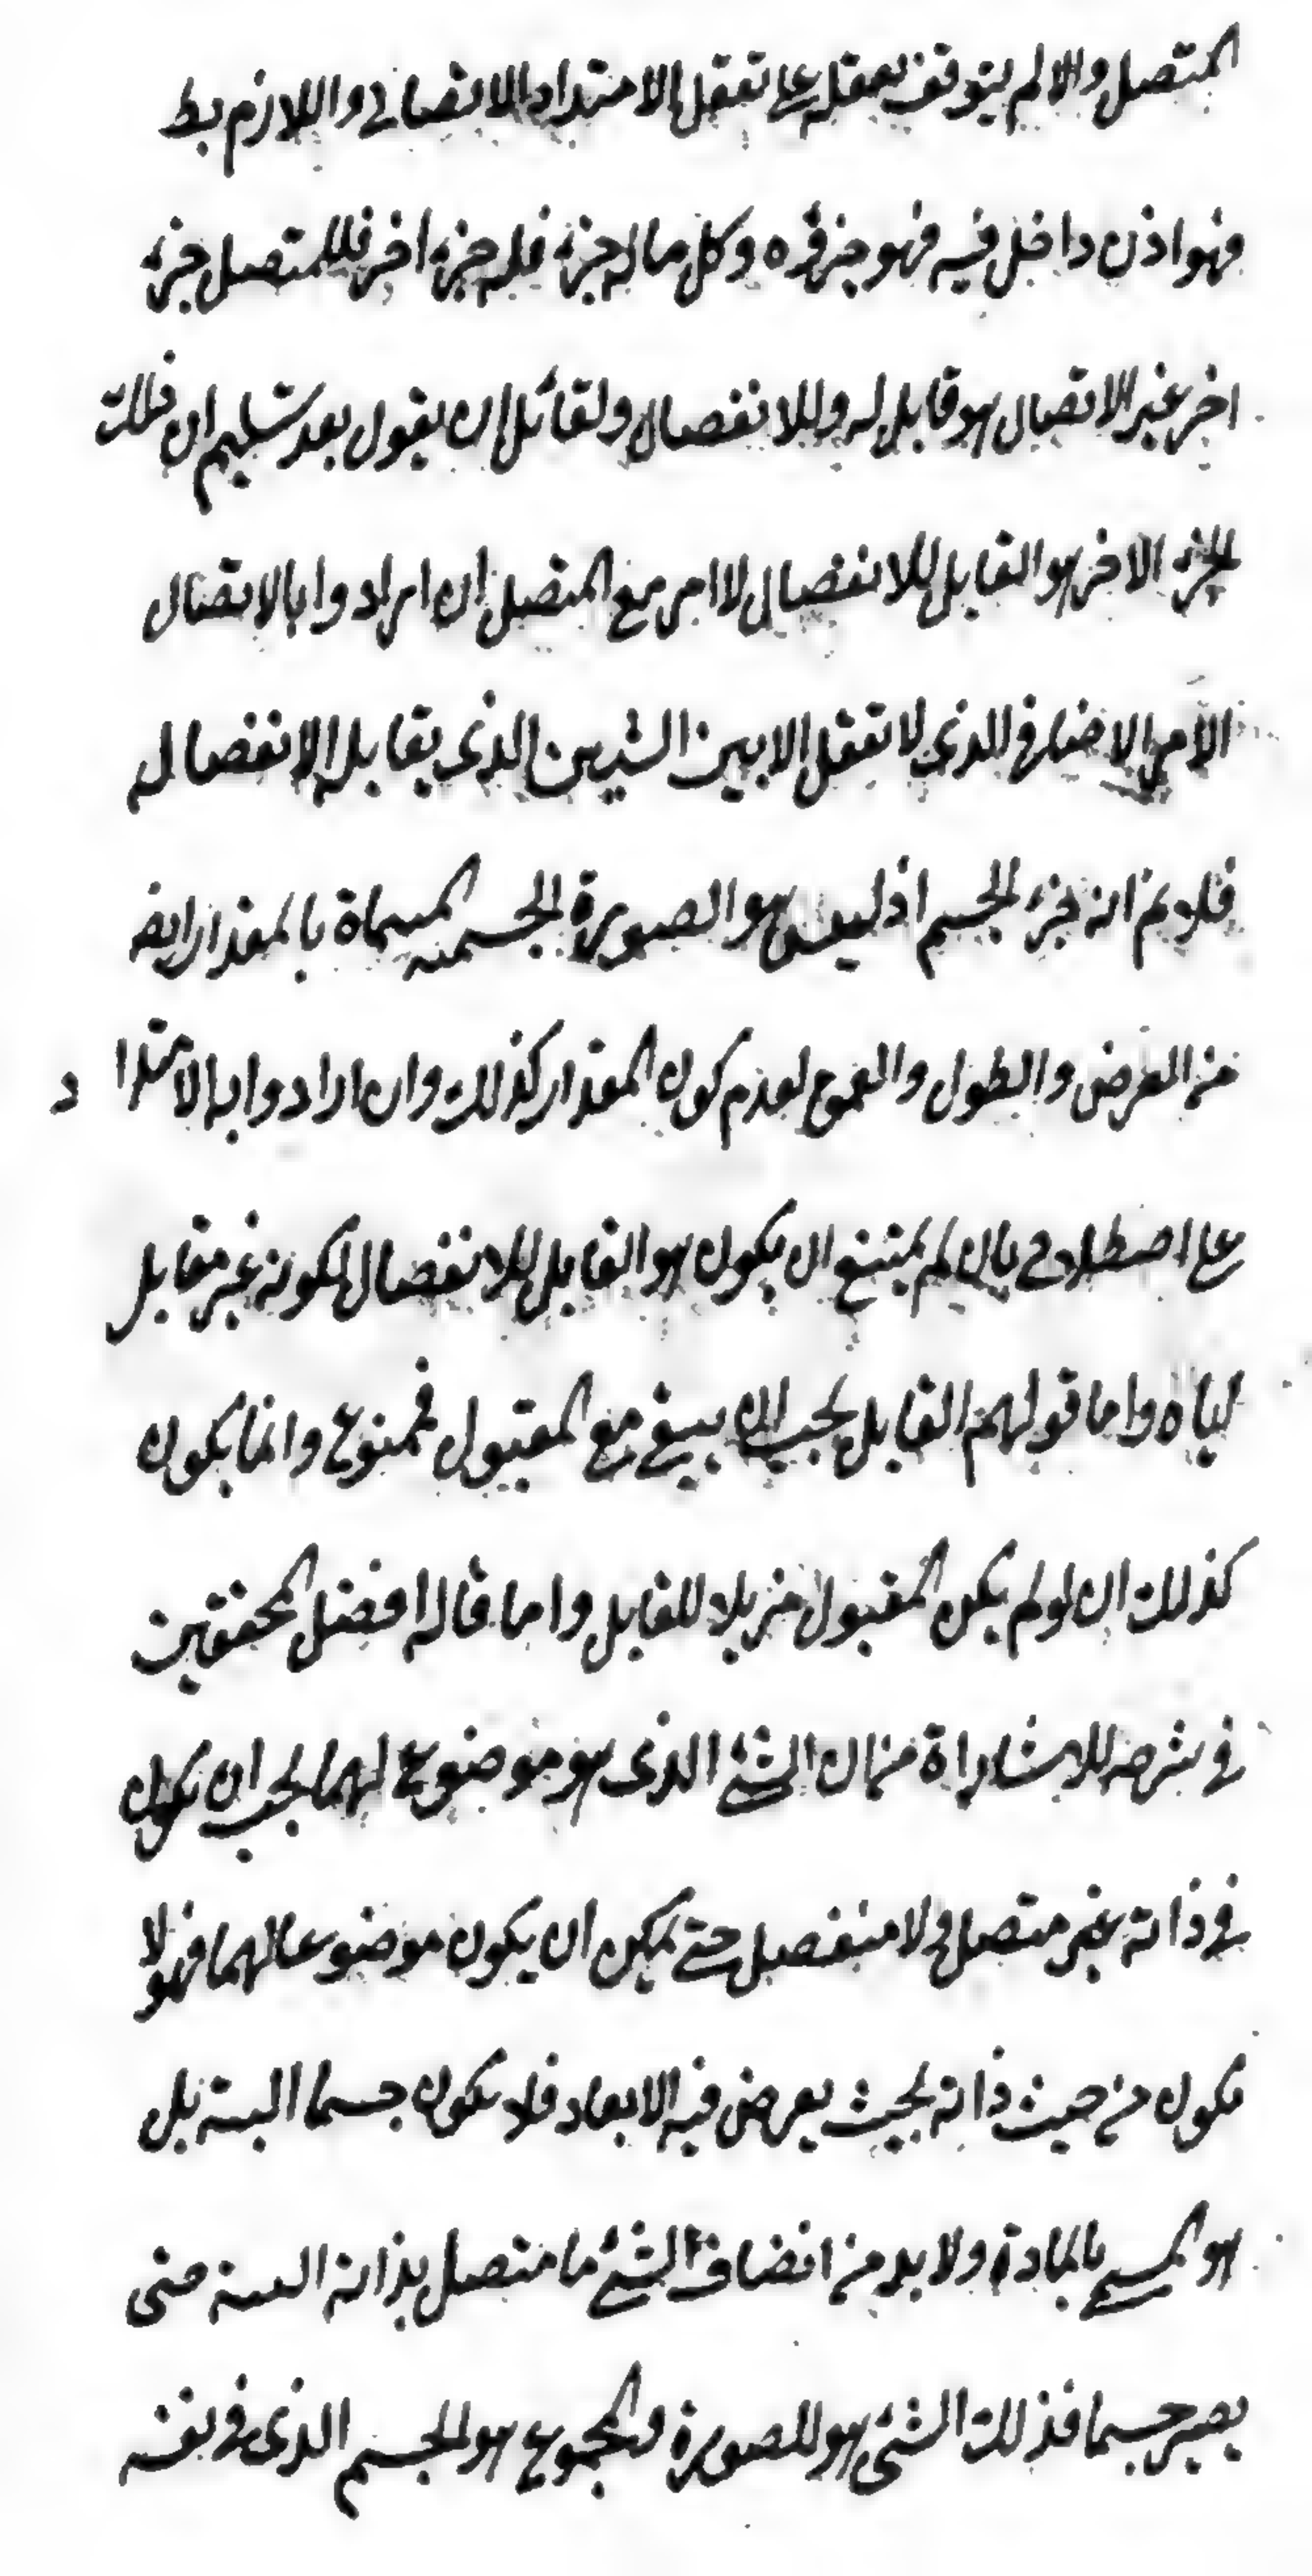 المتصل والا لم يتوقف تعقله على تعقل الامتداد الاتصالى واللازم بط
فهو اذن داخل فيه فهو جزؤه وكل ما له جزء فله جزء اخر فللمتصل جزء
اخر غير الاتصال هو قابل له وللانفصال ولقائل ان يقول بعد تسليم ان ذلك
الجزء الاخر هو القابل للانفصال لا امر مع المتصل ان ارادوا بالاتصال
الامر الاضافى الذى لا تعقل الا بين الشيئين الذى يقابله الانفصال
فلا يم انه جزء الجسم اذ ليس هو الصورة الجسمية المسماة بالمقدار ايضا
من العرض والطول والعمق لعدم كون المقدار كذلك وان ارادوا به الامتداد
على اصطلاحى بان لم يمتنع ان يكون هو القابل للانفصال لكونه غير مقابل
اياه واما قولهم القابل يجب ان يبقى مع المقبول فممنوع وانما يكون
كذلك ان لو لم يكن المقبول مزيلا للقابل واما قاله افضل المحققين
فى شرحه للاشاراة من ان الشئ الذى هو موضوع لهما يجب ان يكون
فى ذاته غير متصل ولا منفصل حتى يمكن ان يكون موضوعا لهما فهو لا
يكون من حيث ذاته بحيث يعرض فيه الابعاد فلا يكون جسما البتة بل
هو المسمى بالمادة ولا بد من انضاف الشئ ما متصل بذاته اليه حتى
يصير جسما فذلك الشئ هو الصورة والمجموع هو الجسم الذى فى نفسه